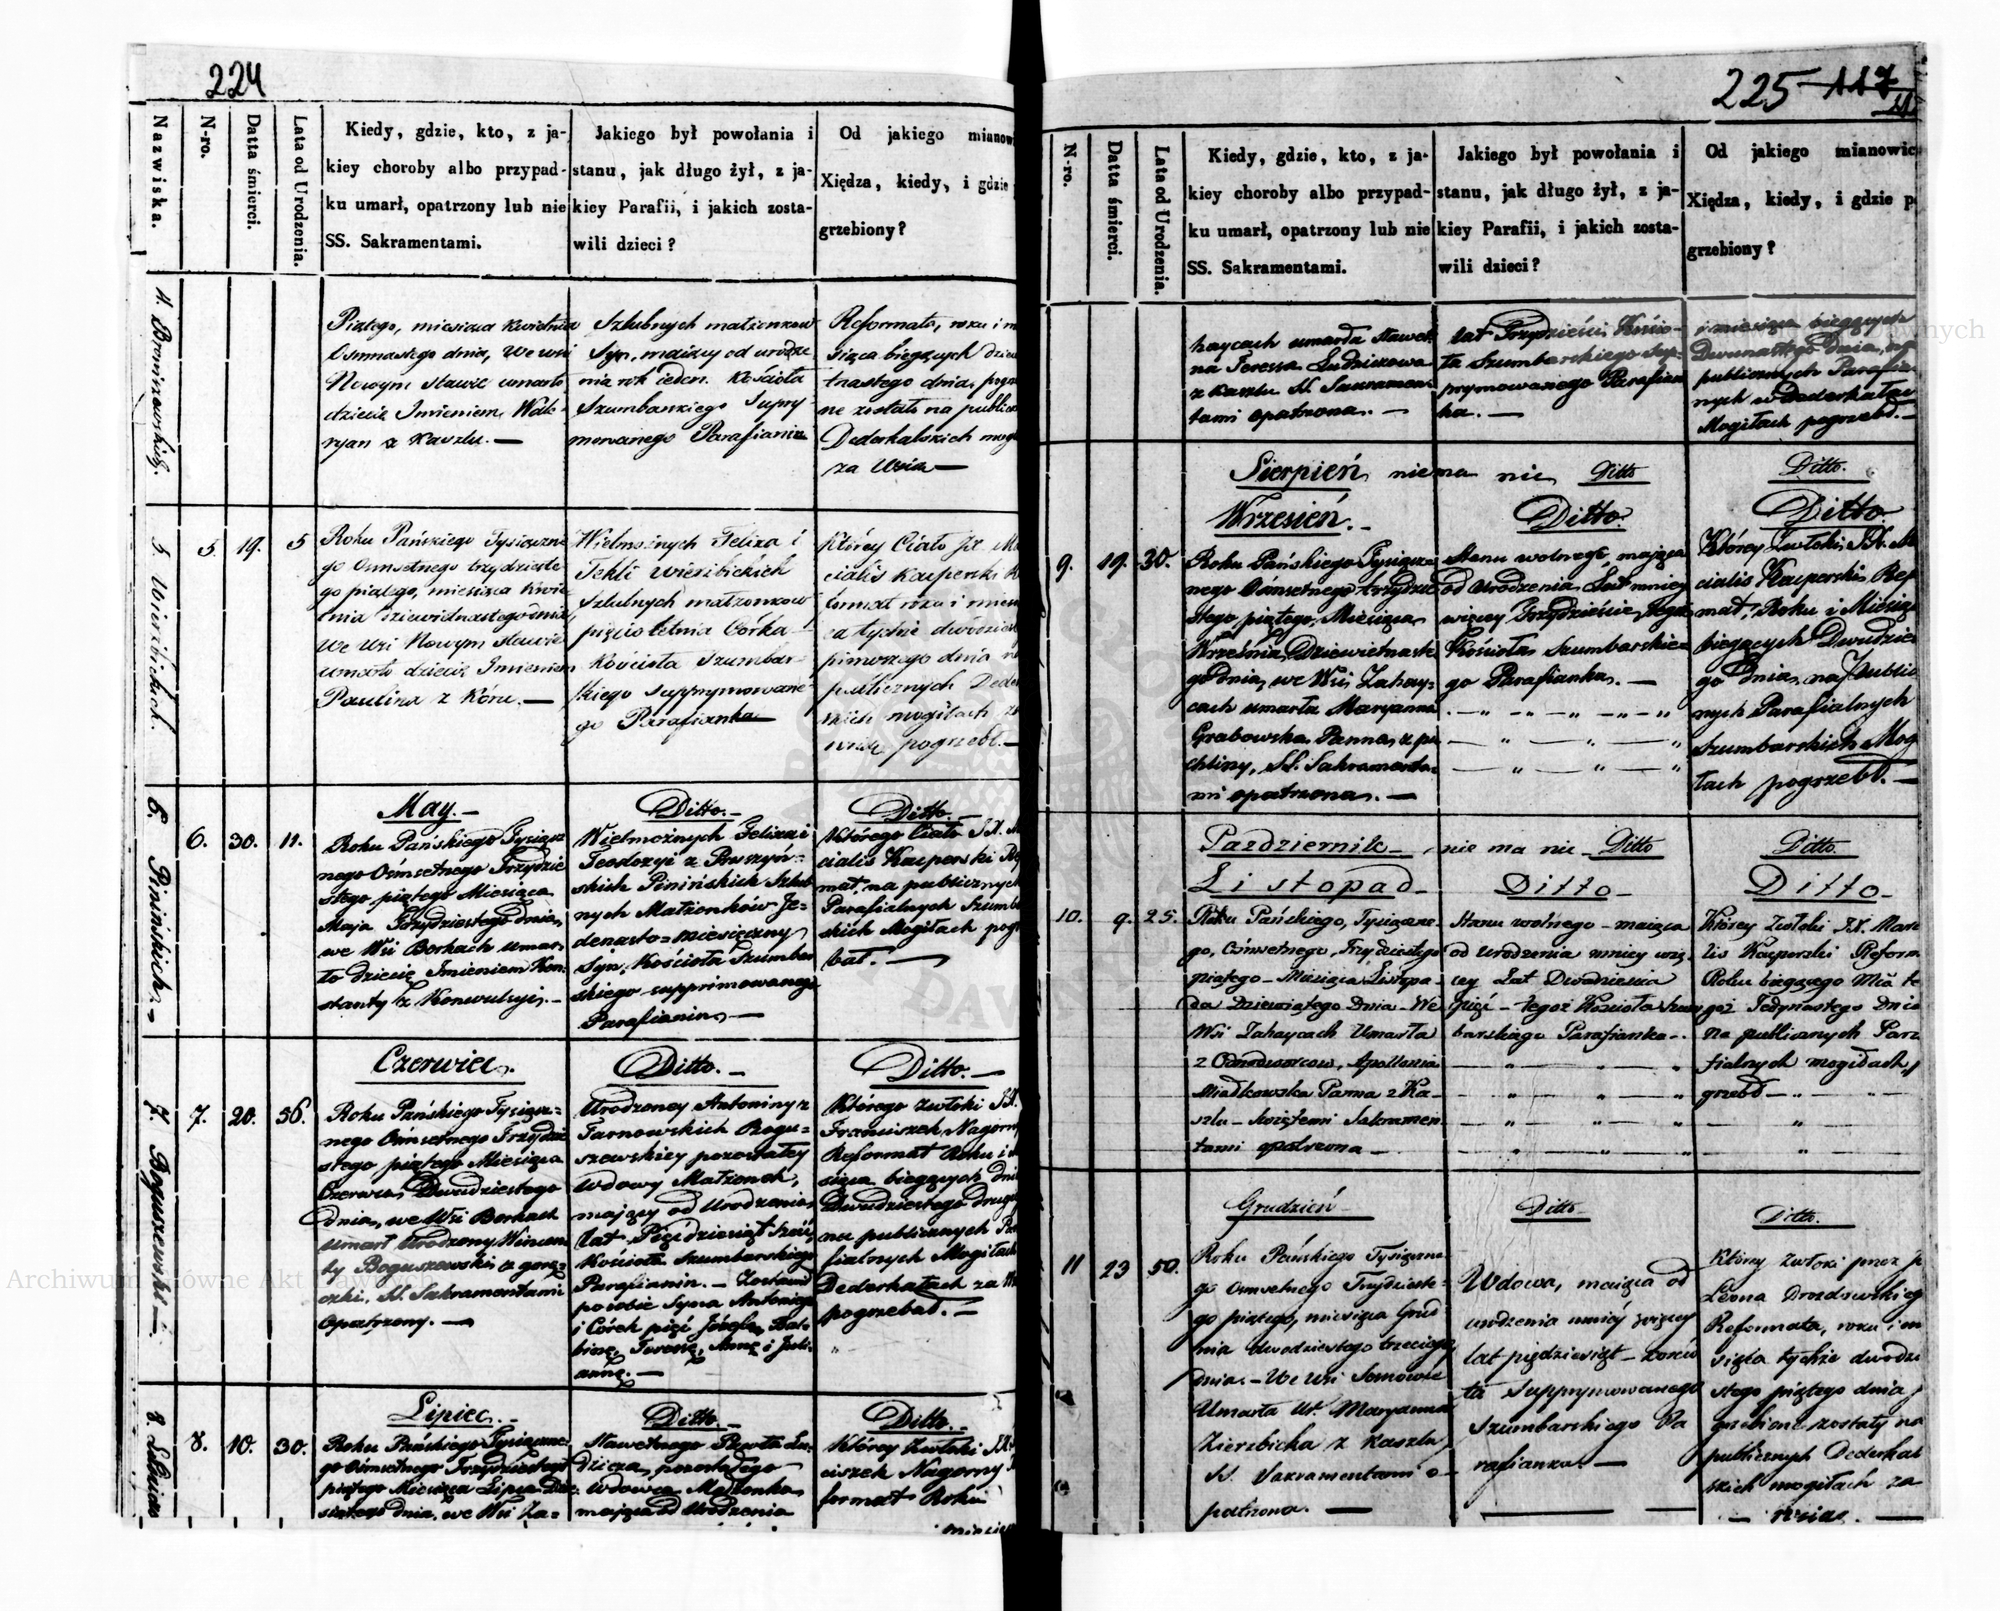 224
Nazwiska.
N-ro.
Datta śmierci.
Lata od Urodzenia.
Kiedy, gdzie, kto, z ja-
kiey choroby albo przypad-
ku umarł, opatrzony lub nie
SS. Sakramentami.
Jakiego był powołania i
stanu, jak długo żył, z ja-
kiey Parafii, i jakich zosta-
wili dzieci?
Od jakiego mianow
Xiędza, kiedy, i gdzie
grzebiony?
Piątego, miesiąca Kwietnia
Osmnastego dnia, We wsi
Nowym stawie umarło
dziecie Imieniem Wale-
ryan z Kaszlu. —
Szlubnych małżonkow
Syn, maiący od urodze
nia rok ieden. Kościoła
Szumbarskiego Supry-
mowanego Parafianin
Reformata, roku i m
siąca bieżących dzie
tnastego dnia, pogrze
ne zostało na public
Dederkalskich mogi
za wsią —
5. Wierzbickich.
5.
19.
5
Roku Pańskiego Tysiączne
go Osmsetnego trzydzieste
go piątego, miesiąca Kwie
tnia dziewiętnastego dnia
We wsi Nowym stawie
umarło dziecię Imieniem
Paulina z Kóru. —
Wielmożnych Felixa i
Tekli Wierzbickich
szlubnych małżonkow
pięcioletnia Córka
Kościoła Szumbar-
skiego supprymowane
go Parafianka
Którey Ciało JX. Ma
cialis Kacperski R
format roku i miesi
ca tychże dwódzies
pierwszego dnia n
publicznych Deder
skich mogiłach za
wsią pogrzebł. —
6. Pinińskich. —
6.
30.
11.
May. —
Roku Pańskiego Tysiącz
nego Ośmsetnego Trzydzie
stego piątego Miesiąca
Maja Trzydziestego dnia,
we Wsi Borkach umar-
ło dziecię Imieniem Kon-
stanty z Konwulsyi. —
Ditto. —
Wielmożnych Felixa i
Teodozyi z Pruszyń-
skich Pinińskich Szlub
nych Małżonków Je-
denasto=miesięczny
Syn, Kościoła Szumbar
skiego supprimowanego
Parafianin. —
Ditto. —
Którego Ciało JX. M
cialis Kacperski Re
mat, na publicznych
Parafialnych Szumb
skich Mogiłach pog
bał. —
7. Boguszewski —
7.
20.
56.
Czerwiec.
Roku Pańskiego Tysiącz=
nego Ośmsetnego Trzydzie
stego piątego Miesiąca
Czerwca, Dwudziestego
dnia, we Wsi Borkach
umarł Urodzony Wincen
ty Boguszewski z gorą-
czki, SS. Sakramentami
opatrzony. —
Ditto. —
Urodzoney Antoniny z
Tarnowskich Bogu=
szewskiey pozostałey
Wdowy Małżonek,
mający od Urodzenia
lat Pięćdziesiąt sześć
Kościoła Szumbarskiego
Parafianin. — Zostawił
po sobie Syna Antoniego
i Córek pięć Józefę, Bal-
binę, Teressę, Annę i Juli-
annę. —
Ditto. —
Którego Zwłoki JX.
Franciszek Nagorny
Reformat Roku i
siąca bieżących dnia
Dwudziestego drugie
na publicznych Par
fialnych Mogiłach
Dederkałach za W
pogrzebał. —
8.
10.
30.
Lipiec. —
Roku Pańskiego Tysiączne-
go Ośmsetnego Trzydziestego
piątego Miesiąca Lipca Dzie-
siątego dnia, we Wsi Za-
Ditto
Sławetnego Pawła Lu-
dzicza, pozostałego
Wdowca Małżonka
mająca od Urodzenia
Ditto. —
Którey Zwłoki JX
ciszek Nagorny
format Roku
225
117
N-ro.
Datta śmierci.
Lata od Urodzenia.
Kiedy, gdzie, kto, z ja-
kiey choroby albo przypad-
ku umarł, opatrzony lub nie
SS. Sakramentami.
Jakiego był powołania i
stanu, jak długo żył, z ja-
kiey Parafii, i jakich zosta-
wili dzieci?
Od jakiego mianowic
Xiędza, kiedy, i gdzie p
grzebiony?
haycach umarła Sławet-
na Teressa Ludziczowa
z Kaszlu SS. Sakramen-
tami opatrzona. —
lat Trzydzieści, Kościo-
ła Szumbarskiego Sup-
prymowanego Parafian
ka. —
i miesiąca bieżących
Dwunastego dnia, na
publicznych Parafia-
nych w Dederkałac
Mogiłach pogrzebł. —
Sierpień nie ma nic Ditto
Ditto.
Wrzesień. —
Ditto
Ditto
9.
19.
30.
Roku Pańskiego Tysiącz
nego Ośmsetnego trzydzie
stego piątego, Miesiąca
Września, Dziewiętnaste
go dnia, we Wsi Zahay-
cach umarła Maryanna
Grabowska Panna z pu
chliny, SS. Sakramenta-
mi opatrzona. —
Stanu wolnego, mająca
od Urodzenia Lat mniey
więcey Trzydzieście, tego
Kościoła Szumbarskie
go Parafianka. —
Którey Zwłoki JX. Ma
cialis Kacperski Ref
mat, Roku i Miesiąc
bieżących Dwudzies
go Dnia, na Public
nych Parafialnych
Szumbarskich Mog
łach pogrzebł. —
Październik — nie ma nic — Ditto
Ditto.
Listopad —
Ditto —
Ditto —
10.
9.
25.
Roku Pańskiego, Tysiączne-
go, Ośmsetnego, Trzydziestego
piątego — Miesiąca Listopa-
da Dziewiątego Dnia — We
Wsi Zahaycach Umarła
z Odnodworcow, Apollonia
Miadkowska Panna z Ka-
szlu — Swiętemi Sakramen
tami opatrzona —
Stanu wolnego — maiąca
od urodzenia mniey wię-
cey Lat Dwadzieścia
pięć — tegoż Kościoła Szum
barskiego Parafianka —
Którey Zwłoki JX. Marc
lis Kacperski Reform
Roku bieżącego Mca te
goż Jedynastego Dnia
na publicznych Para
fialnych mogiłach, p
grzebł —
Grudzień —
Ditto —
Ditto.
11
23
50.
Roku Pańskiego Tysiączne-
go Osmsetnego Trzydzieste-
go piątego, miesiąca Grud-
nia dwodziestego trzeciego
dnia. — We wsi Somówce
Umarła W. Maryanna
Zierzbicka z Kaszlu
SS. Sakramentami o-
patrzona. —
Wdowa, maiąca od
urodzenia mniéy więcey
lat pięćdziesiąt — Kościo
ła Supprymowanego
Szumbarskiego Pa
rafianka. —
Którey Zwłoki przez J
Leona Drozdowskieg
Reformata, roku i m
siąca tychże dwodzie
stego piątego dnia p
grzebione zostały na
publicznych Dederkal
skich mogiłach za
— wsią. —
Archiwum Główne Akt Dawnych